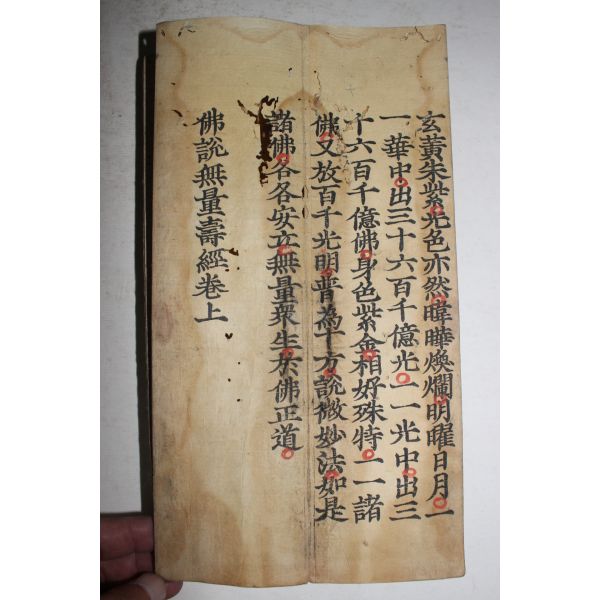 玄黃朱紫光色亦然暐曄煥爛明曜日月一
一華中出三十六百千億光一一光中出三
十六百千億佛身色紫金相好殊特一一諸
佛又放百千光明普為十方說微妙法如是
諸佛各各安立無量衆生於佛正道
佛說無量壽經卷上